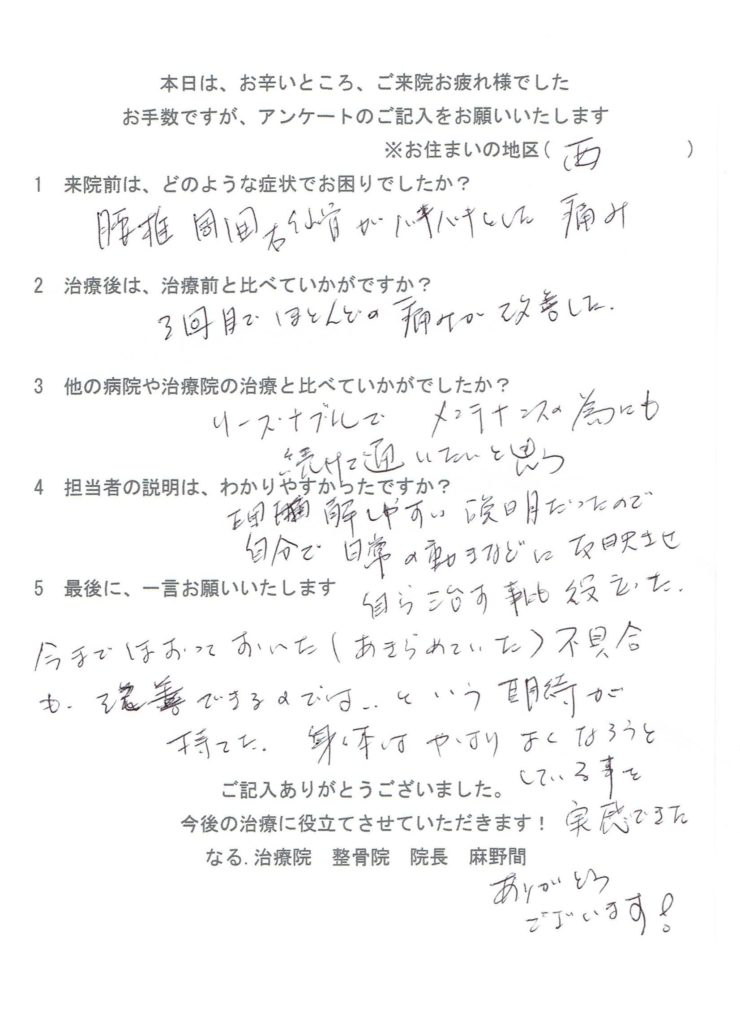 本日は、お辛いところ、ご来院お疲れ様でした
お手数ですが、アンケートのご記入をお願いいたします
※お住まいの地区( 西 )
1 来院前は、どのような症状でお困りでしたか?
腰椎 周囲 が バキバキとした 痛み
2 治療後は、治療前と比べていかがですか?
3回目で ほとんどの 痛みが 改善した.
3 他の病院や治療院の治療と比べていかがでしたか?
リーズナブルで メンテナンスの為にも
続けて通いたいと思う
4 担当者の説明は、わかりやすかったですか?
理解しやすい 説明だったので
自分で 日常の動きなどに 反映させ
5 最後に、一言お願いいたします
自ら治す事にも役立った.
今まで ほおって おいた(あきらめていた)不具合
も. 改善できるのでは.. という 期待が
持てた. 身体は やはり よくなろうと
ご記入ありがとうございました。
している事を
今後の治療に役立てさせていただきます!
実感できた
なる.治療院 整骨院 院長 麻野間
ありがとう
ございます!